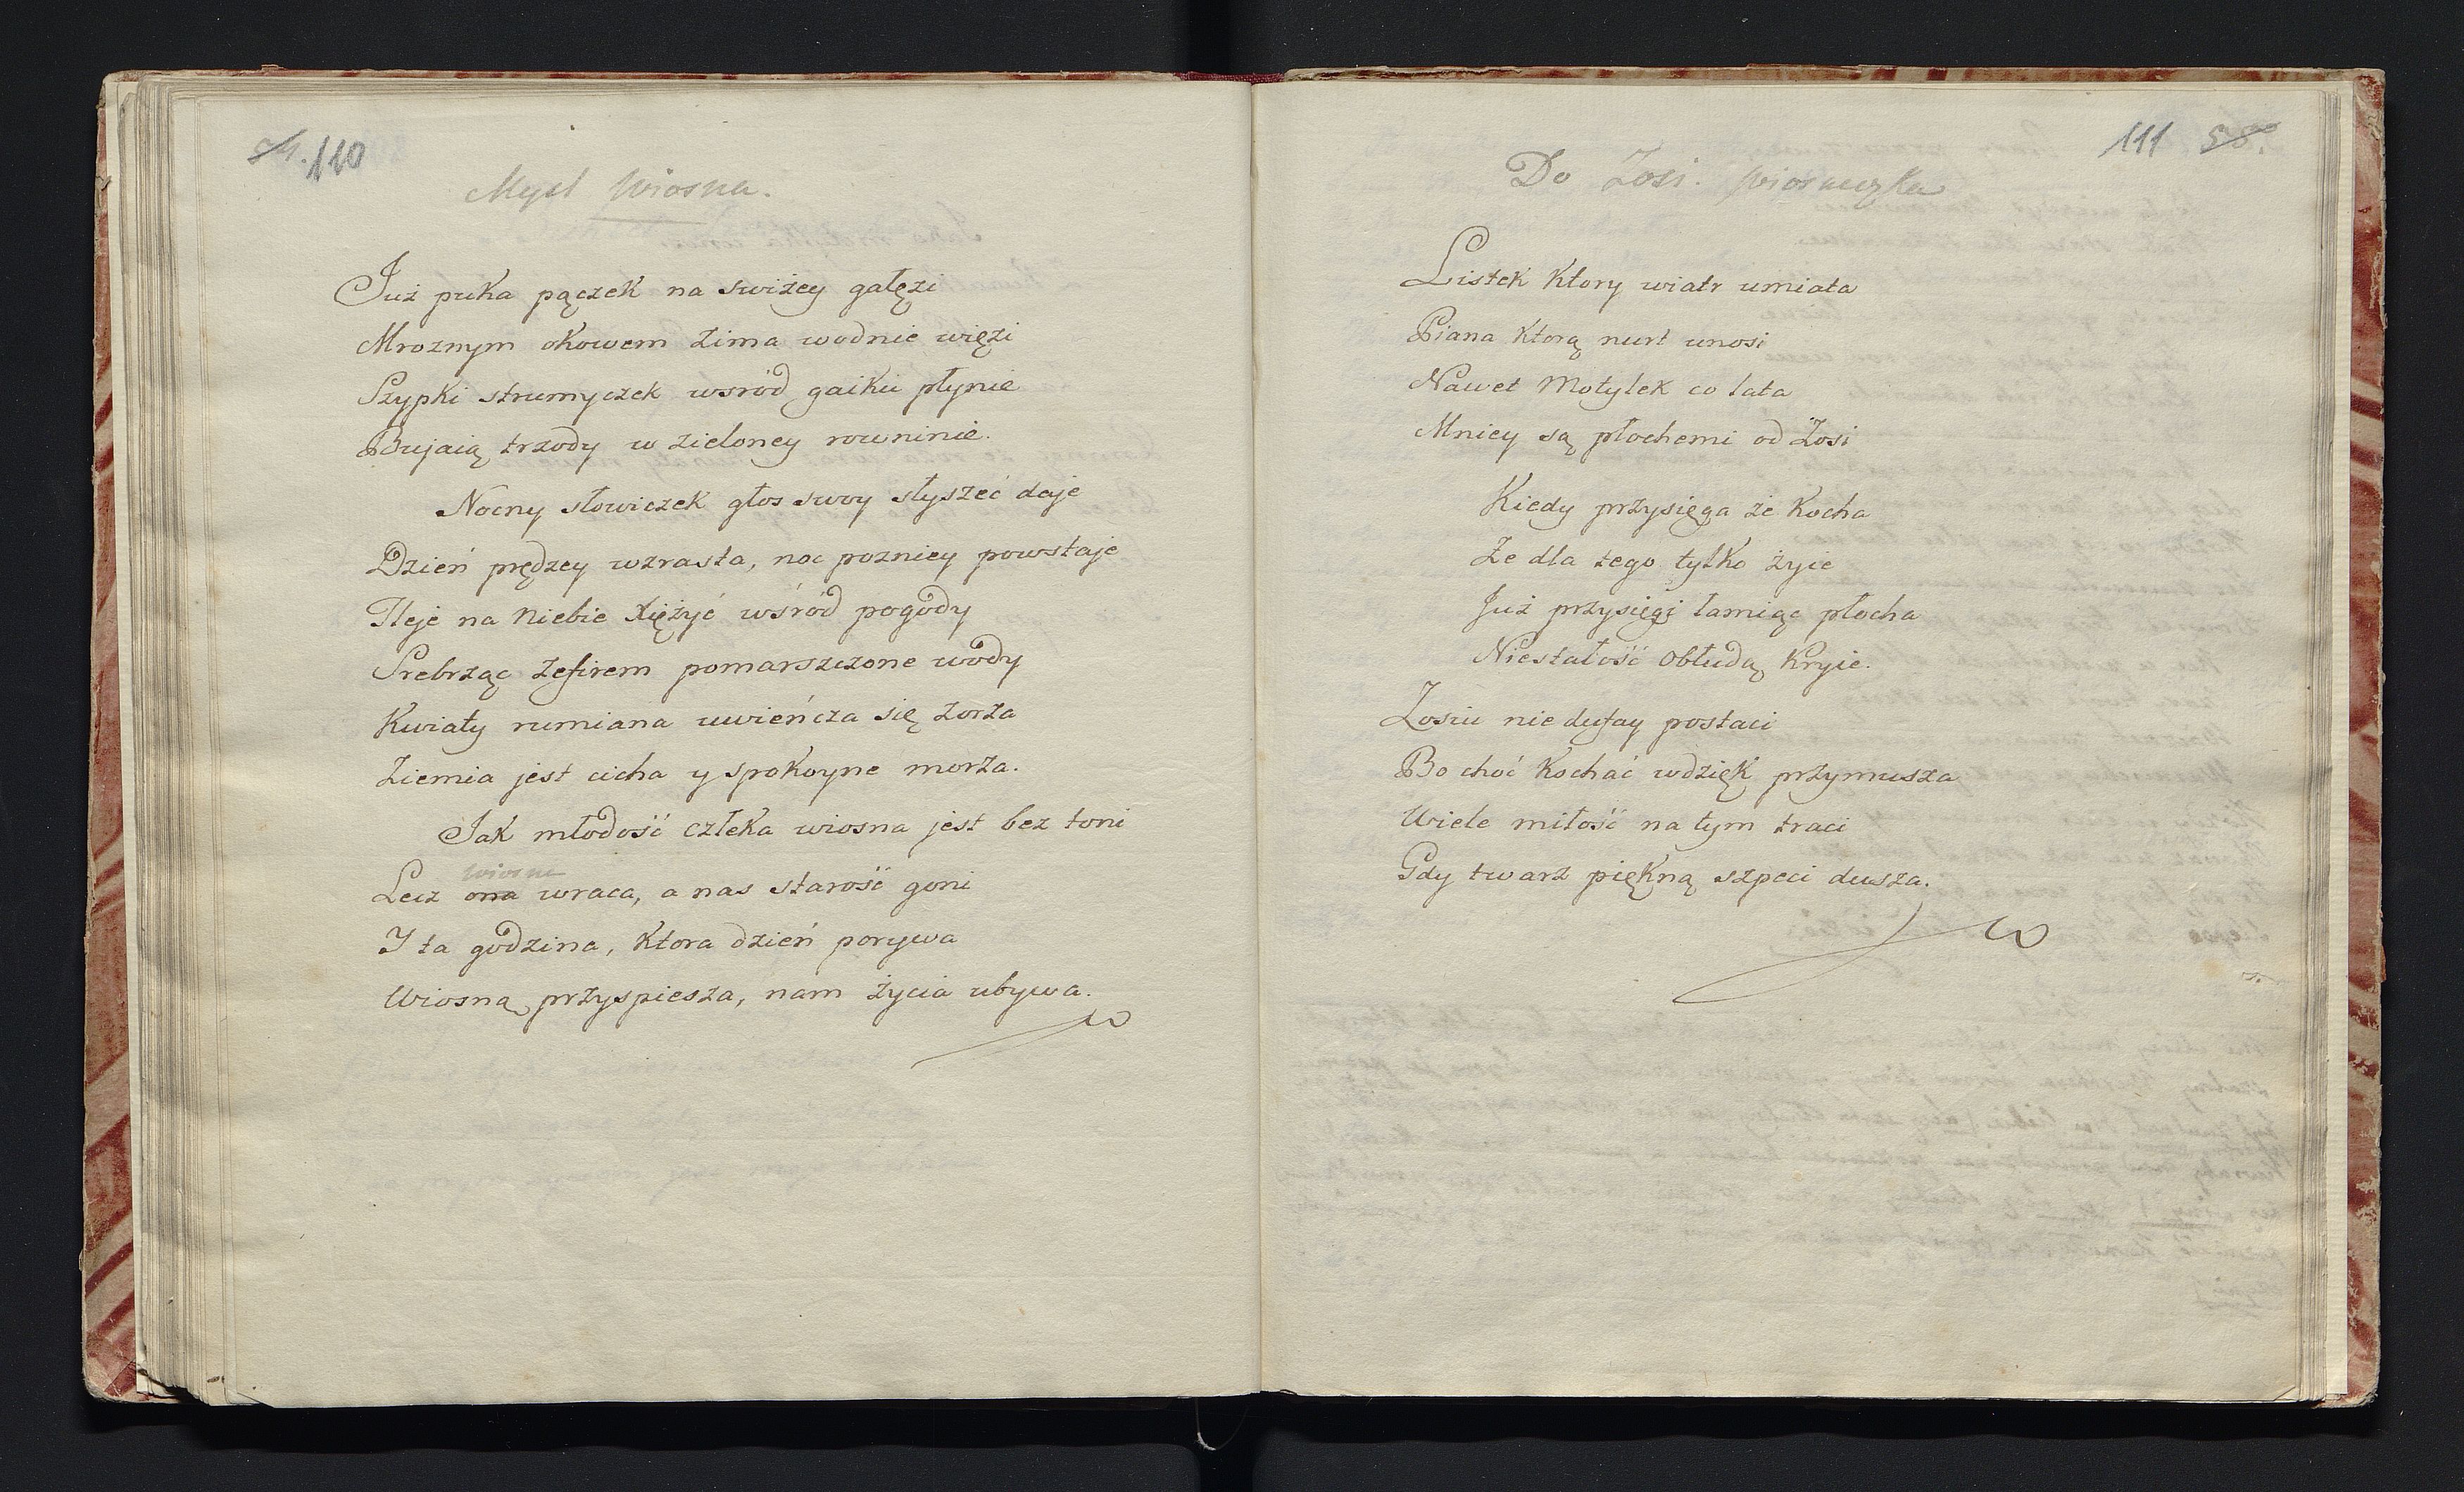 110
Mysl wiosna.
Już puka pączek na swiżey gałęzi
Mroznym okowem zima wodnie więzi
Szypki strumyczek wsród gaiku płynie
Bujaią trzody w zieloney rowninie.
Nocny słowiczek głos swoy słyszeć daje
Dzień prędzey wzrasta, noc pozniey powstaje
Tleje na Niebie xiężyć wśród pogody
Srebrząc zefirem pomarszczone wody
Kwiaty rumiana uwieńcza się zorza
Ziemia jest cicha y spokoyne morza.
Jak młodość człeka wiosna jest bez toni
wiosna
Lecz ona wraca, a nas starość goni
I ta godzina, ktora dzień porywa
Wiosną przyspiesza, nam życia ubywa.
111 58.
Do Zosi. piosneczka
Listek ktory wiatr umiata
Piana ktorą nurt unosi
Nawet Motylek co lata
Mniey są płochemi od Zosi
Kiedy przysięga że kocha
Ze dla tego tylko żyie
Już przysięgi łamiąc płocha
Niestałość obłudą kryie.
Zosiu nie dufay postaci
Bo choć kochać wdzięk przymusza
Wiele miłość na tym traci
Gdy twarz piękną szpeci dusza.